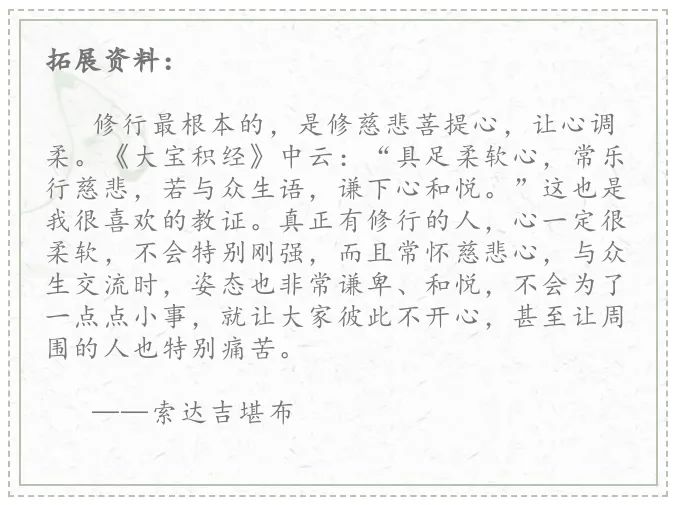 拓展资料：
修行最根本的，是修慈悲菩提心，让心调
柔。《大宝积经》中云：“具足柔软心，常乐
行慈悲，若与众生语，谦下心和悦。”这也是
我很喜欢的教证。真正有修行的人，心一定很
柔软，不会特别刚强，而且常怀慈悲心，与众
生交流时，姿态也非常谦卑、和悦，不会为了
一点点小事，就让大家彼此不开心，甚至让周
围的人也特别痛苦。
——索达吉堪布